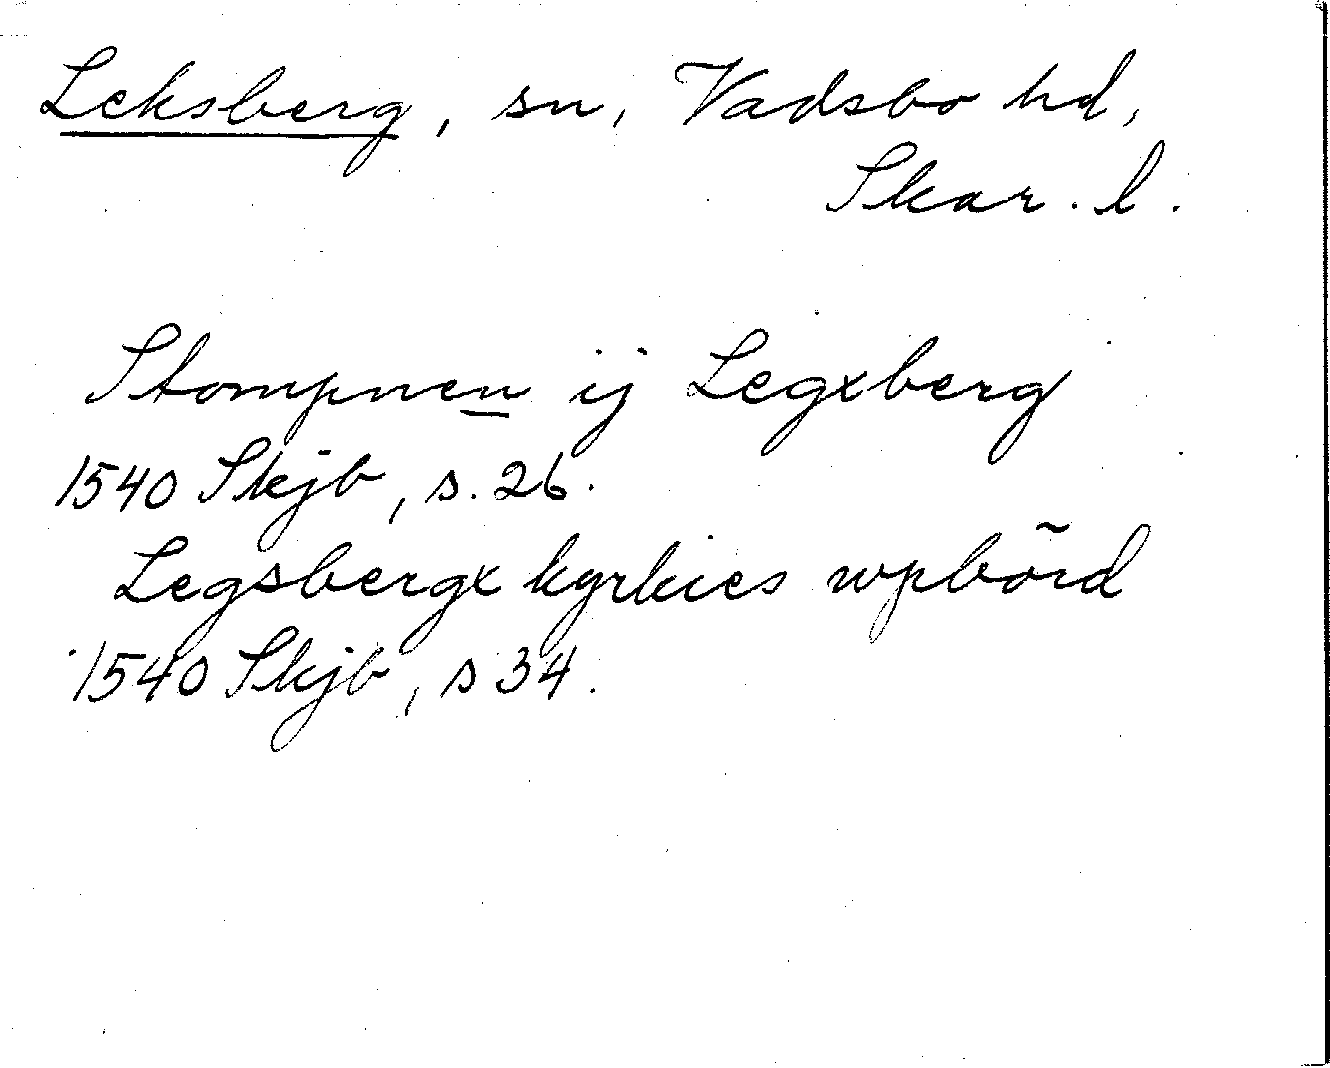 Leksberg, sn, Vadsbo hd,
Skar. l.
Stompnen ij Legxberg
1540 Skjb, s. 26.
Legsbergx kyrkies wpbõrd
1540 Skjb, s 34.